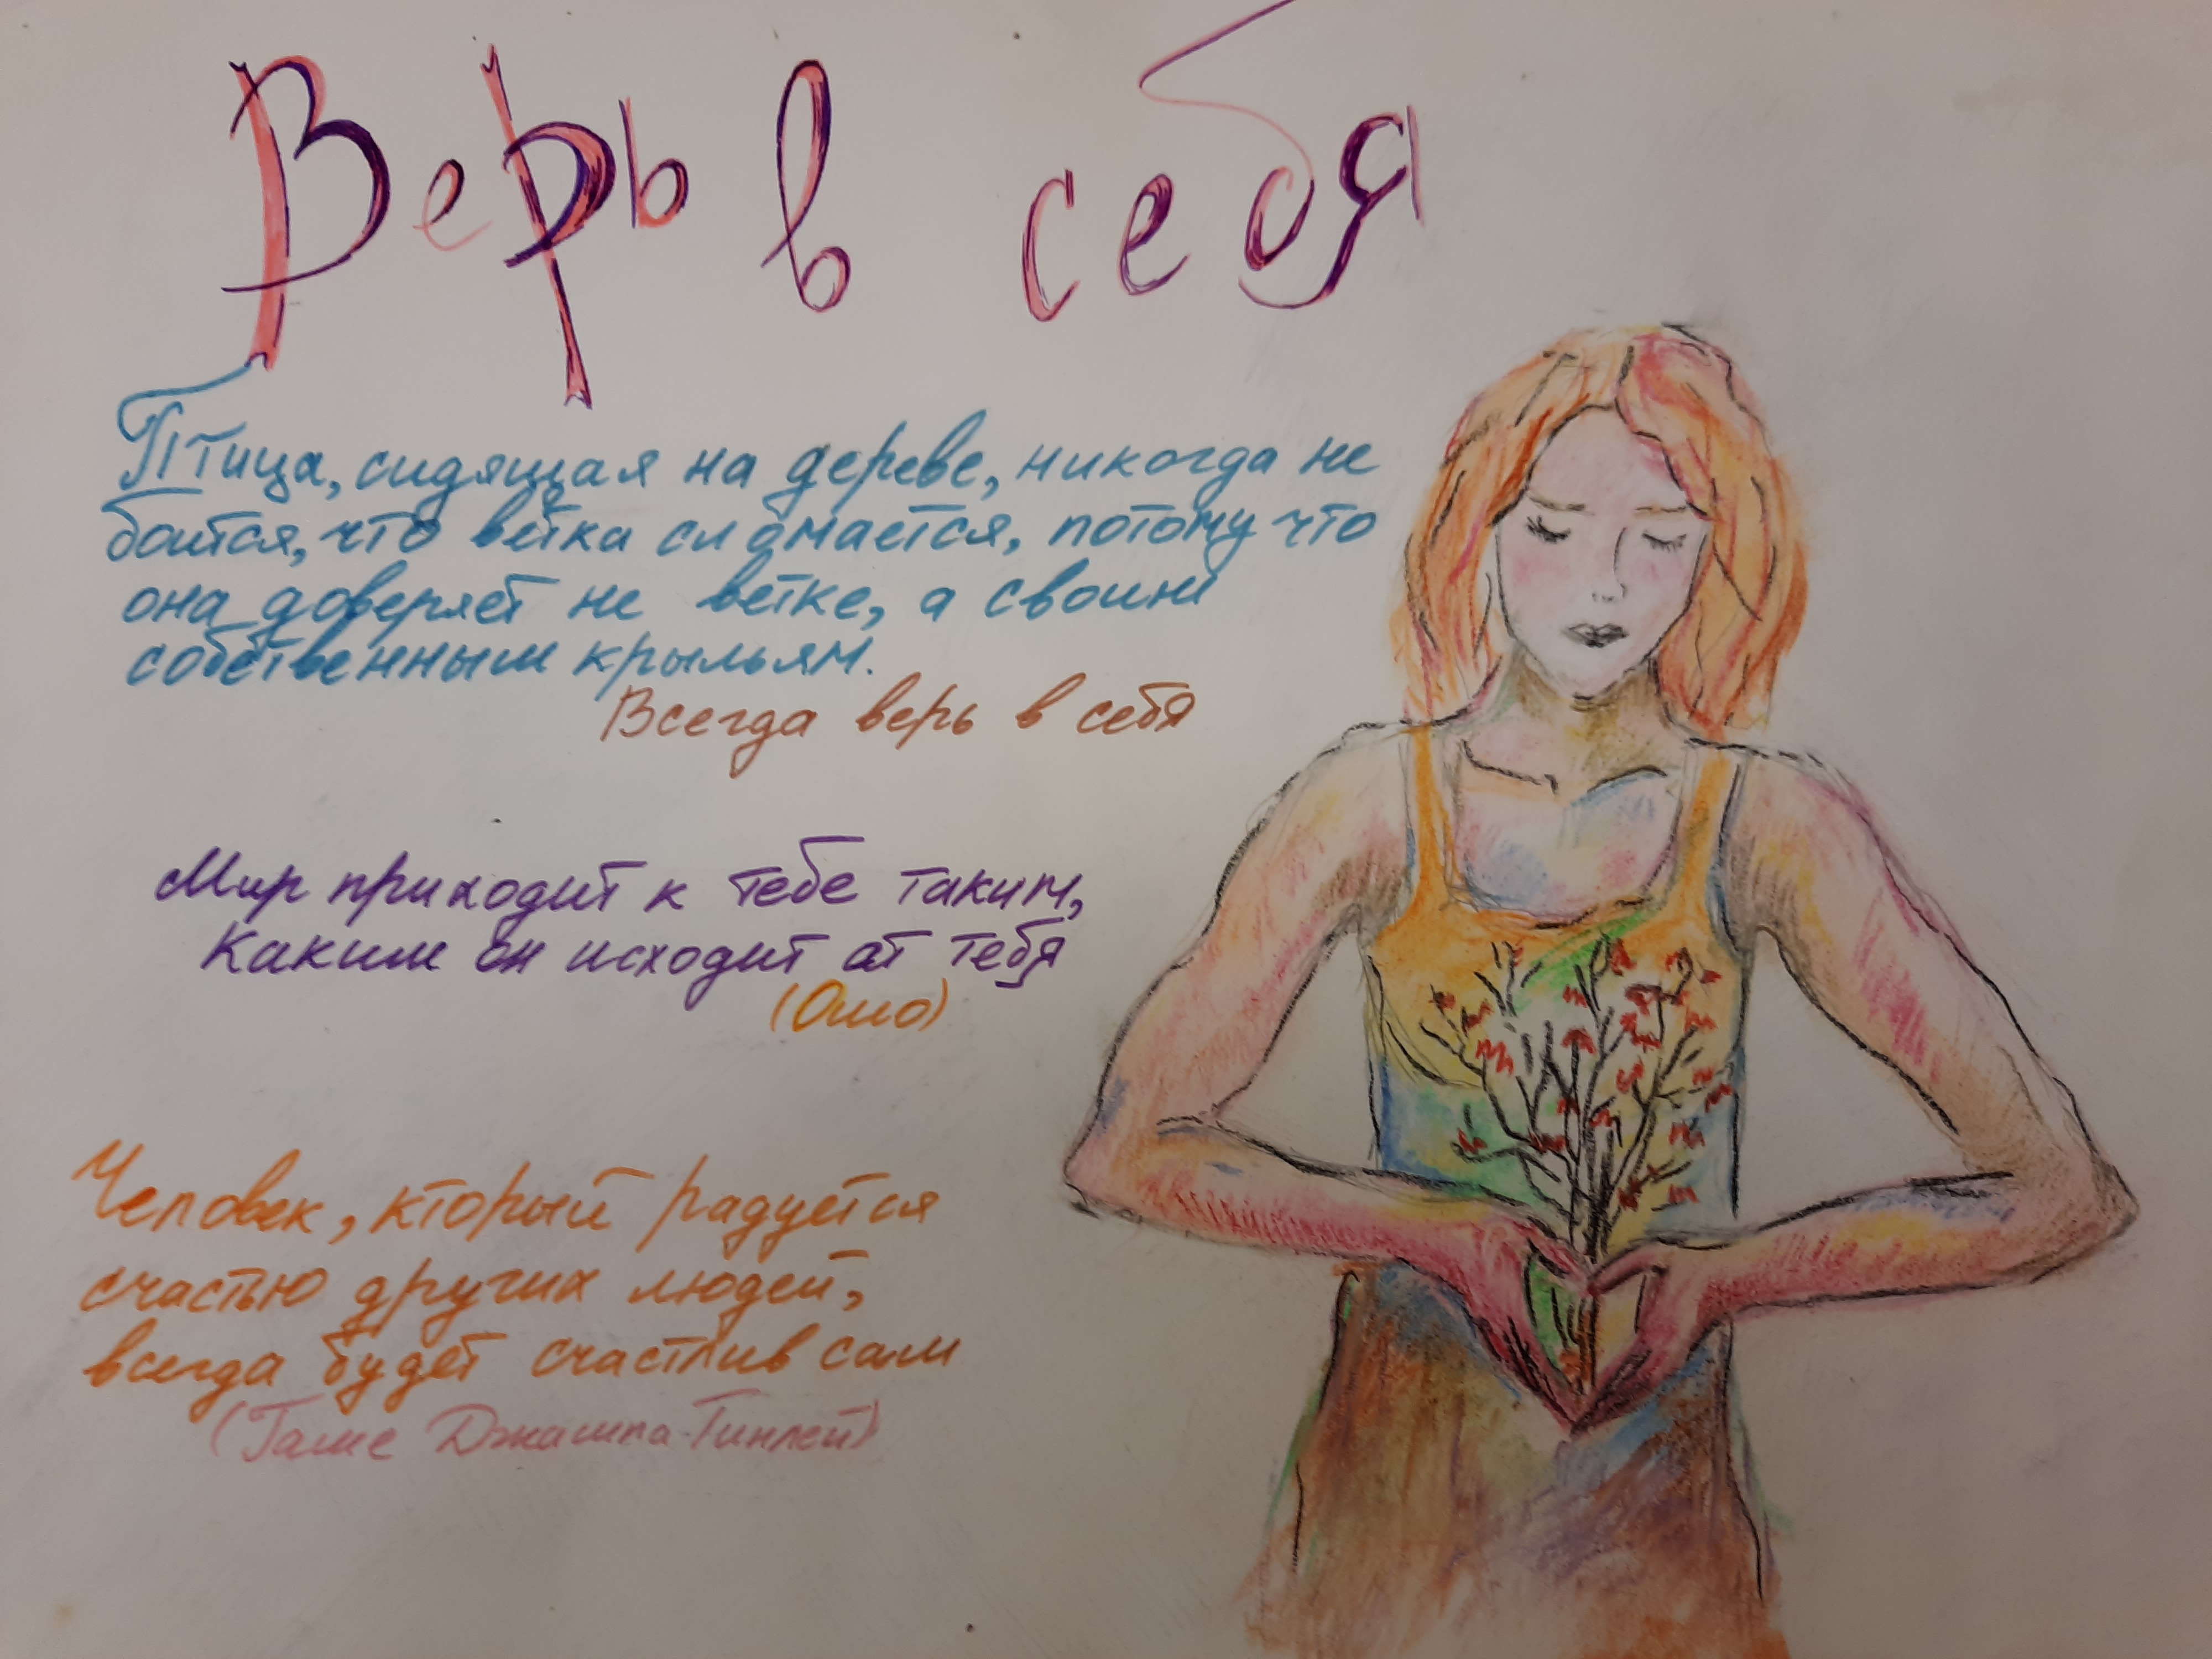 Верь в себя
Птица, сидящая на дереве, никогда не
боится, что ветка сломается, потому что
она доверяет не ветке, а своим
собственным крыльям.
Всегда верь в себя
Мир приходит к тебе таким,
Каким он исходит от тебя
(Ошо)
Человек, кторый радуется
счастью других людей,
всегда будет счастлив сам
(Гаше Джашпа-Тинлей)